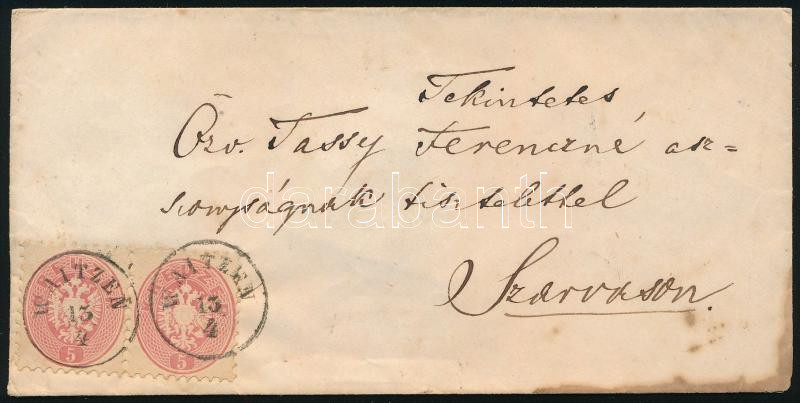 Tekintetes
Özv. Tassy Ferenczné asz=
szonyságnak tisztelettel
Szarvason.
darabanth
WAITZEN
13
4
WAITZEN
13
4
5
5